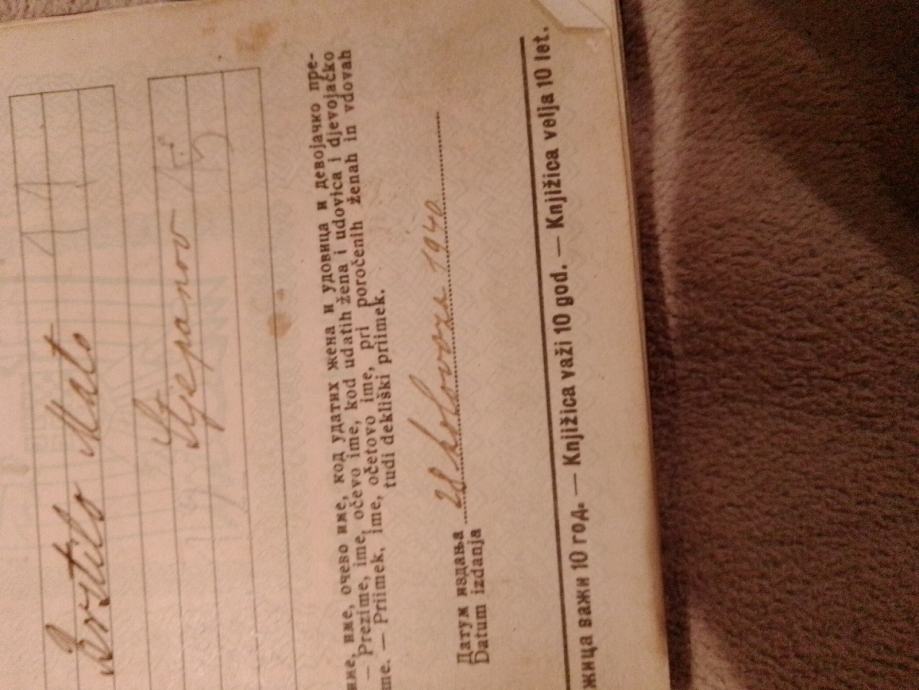 Brstilo Mato
Stjepanov
име, име, очево име, код удатих жена и удовица и девојачко пре-
— Prezime, ime, očevo ime, kod udatih žena i udovica i djevojačko
me. — Priimek, ime, očetovo ime, pri poročenih ženah in vdovah
tudi dekliški priimek.
Датум издања
Datum izdanja 28 kolovoza 1940.
жица важи 10 год. — Knjižica važi 10 god. — Knjižica velja 10 let.